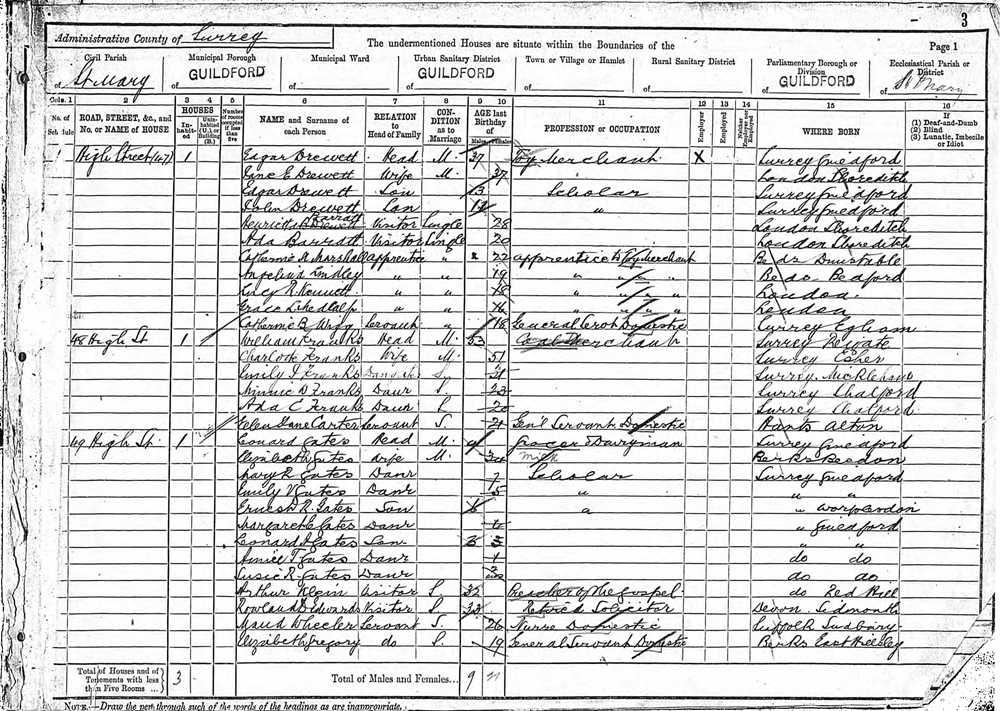 3
Administrative County of Surrey
The undermentioned Houses are situate within the Boundaries of the
Page 1
Civil Parish of St Mary
Municipal Borough of GUILDFORD
Municipal Ward of
Urban Sanitary District of GUILDFORD
Town or Village or Hamlet of
Rural Sanitary District of
Parliamentary Borough or Division of GUILDFORD
Ecclesiastical Parish or District of St Mary
Cols. 1 2 3 4 5 6 7 8 9 10 11 12 13 14 15 16
No. of Schedule
ROAD, STREET, &c., and No. or NAME of HOUSE
HOUSES
Inhabited
Uninhabited (U.), or Building (B.)
Number of rooms occupied if less than five
NAME and Surname of each Person
RELATION to Head of Family
CONDITION as to Marriage
AGE last Birthday of
Males Females
PROFESSION or OCCUPATION
Employer
Employed
Neither Employer nor Employed
WHERE BORN
If (1) Deaf-and-Dumb (2) Blind (3) Lunatic, Imbecile or Idiot
1 High Street (47) 1 Edgar Drewett Head M. 37 Toy Merchant X Surrey Guildford
Jane E Drewett Wife M. 37 London Shoreditch
Edgar Drewett Son 13 Scholar Surrey Guildford
John Drewett Son 12 " Surrey Guildford
Barratt
Drewett Visitor Single 28 London Shoreditch
Ada Barratt Visitor Single 20 London Shoreditch
Catherine Marshall apprentice " 22 apprentice to Toy Merchant Beds Dunstable
Angelina " " 19 " " " Beds Bedford
Lucy R. " " 18 " " " London
Grace " " 16 " " " London
Catherine B Servant " 18 General Servt Domestic Surrey Egham
48 High St 1 William Franks Head M. 53 Coal Merchant Surrey Reigate
Charlotte Franks Wife M. 51 Surrey Esher
Emily J Franks Daughter S 31 Surrey Mickleham
Minnie D Franks Daur S 23 Surrey Shalford
Ada C Franks Daur S 20 Surrey Shalford
Ellen Jane Carter Servant S. 21 Genl Servant Domestic Hants Alton
49 High St. 1 Leonard Gates Head M. Grocer & Dairyman Surrey Guildford
Elizabeth Gates Wife M. 34 Milk Berks Beedon
Mary R Gates Daur 7 Scholar Surrey Guildford
Emily V Gates Daur 5 " " "
Ernest R. Gates Son 6 " " Worplesdon
Margaret C Gates Daur 4 " Guildford
Leonard Gates Son 3 " "
T Gates Daur 1 do do
Susie R. Gates Daur do do
Arthur Klein Visitor S 32 Preacher of the Gospel do Red Hill
Rowland Edwards Visitor S. 33 Retired Solicitor Devon. Sidmouth
Maud Wheeler Servant S. 26 Nurse Domestic Suffolk Sudbury
Elizabeth Gregory do S. 19 General Servant Domestic Berks East Hilsley
Total of Houses and of Tenements with less than Five Rooms ... 3
Total of Males and Females... 9 21
NOTE.—Draw the pen through such of the words of the headings as are inappropriate.